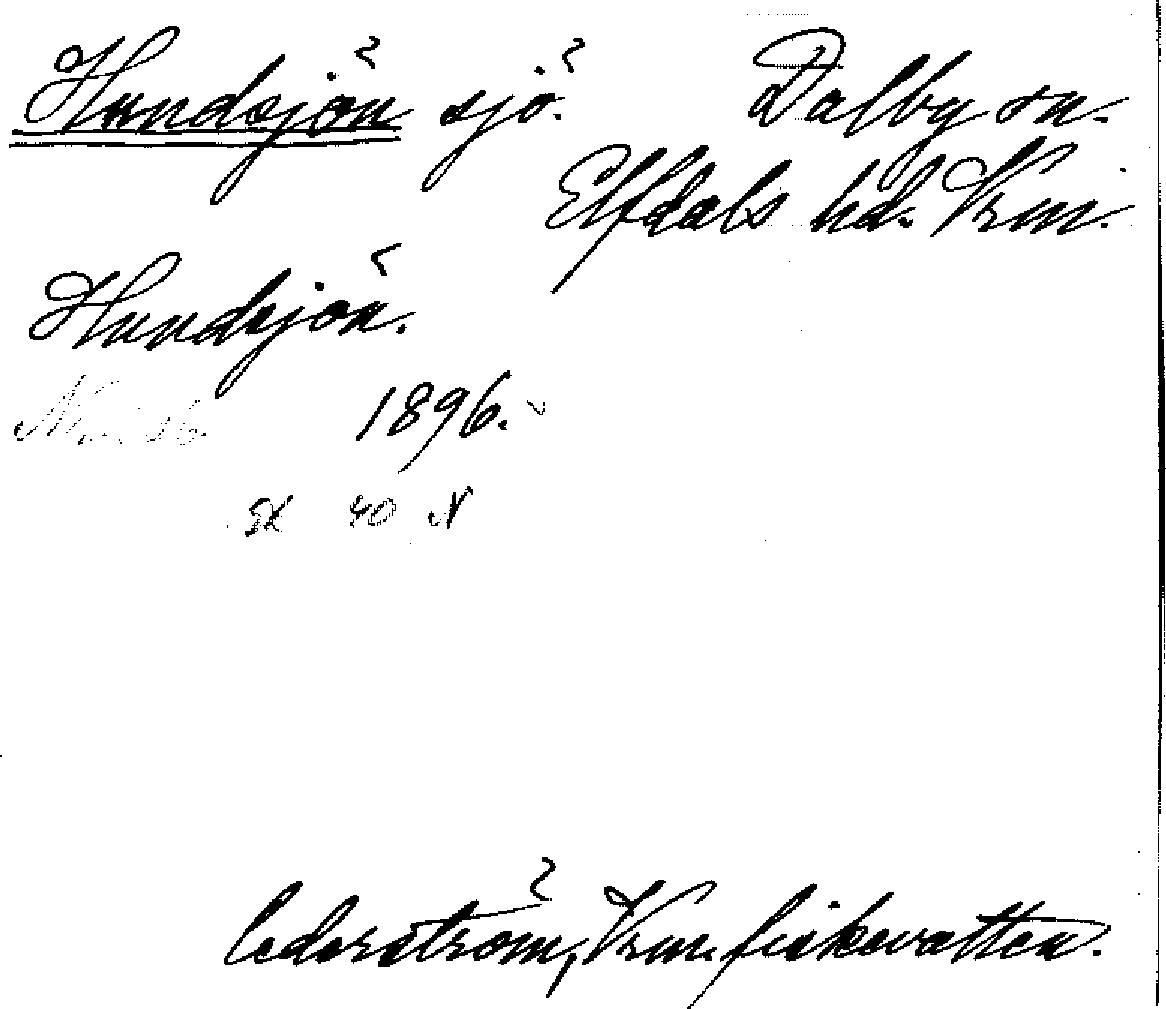 Hundsjön sjö. Dalby sn.
Elfdals hd. Vrm.
Hundsjön.
1896.
SK 40 N
Cederström, Vrm. fiskevatten.